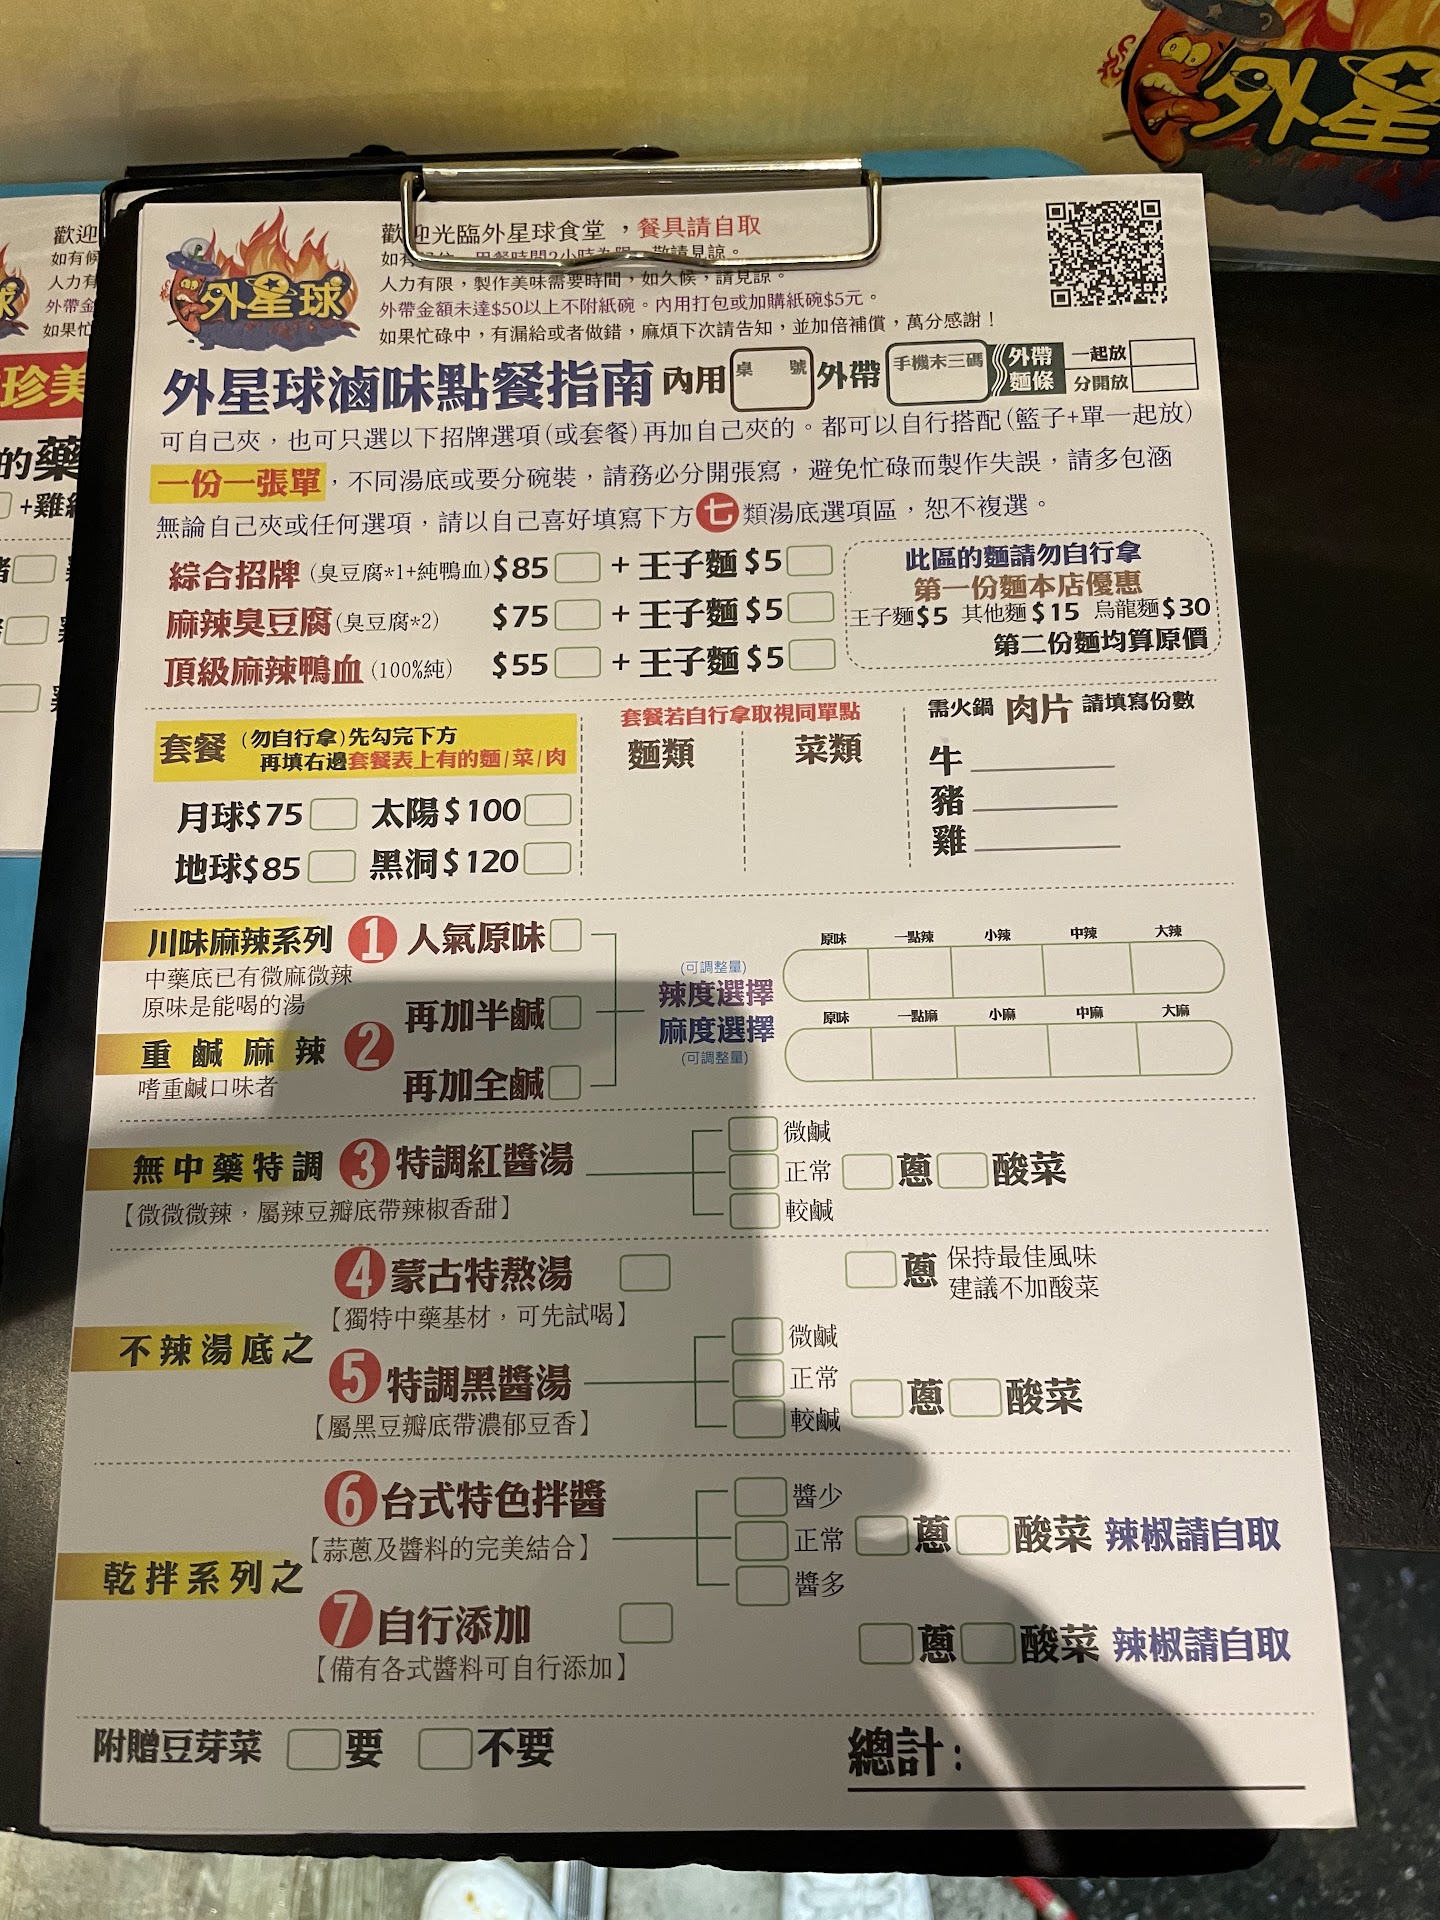 外星
外星球
歡迎光臨外星球食堂，餐具請自取
人力有限，製作美味需要時間，如久候，請見諒。
外帶金額未達$50以上不附紙碗。內用打包或加購紙碗$5元。
如果忙碌中，有漏給或者做錯，麻煩下次請告知，並加倍補償，萬分感謝！
外星球滷味點餐指南 內用 桌 號 外帶 手機末三碼 外帶麵條 一起放 分開放
可自己夾，也可只選以下招牌選項(或套餐)再加自己夾的。都可以自行搭配(籃子+單一起放)
一份一張單，不同湯底或要分碗裝，請務必分開張寫，避免忙碌而製作失誤，請多包涵
無論自己夾或任何選項，請以自己喜好填寫下方七類湯底選項區，恕不複選。
綜合招牌(臭豆腐*1+純鴨血)$85 +王子麵$5
麻辣臭豆腐(臭豆腐*2) $75 +王子麵$5
頂級麻辣鴨血(100%純) $55 +王子麵$5
此區的麵請勿自行拿
第一份麵本店優惠
王子麵$5 其他麵$15 烏龍麵$30
第二份麵均算原價
套餐 (勿自行拿)先勾完下方
再填右邊套餐表上有的麵/菜/肉
月球$75 太陽$100
地球$85 黑洞$120
套餐若自行拿取視同單點
麵類 菜類
需火鍋 肉片 請填寫份數
牛
豬
雞
川味麻辣系列 1 人氣原味
中藥底已有微麻微辣
原味是能喝的湯
重鹹麻辣 2 再加半鹹
嗜重鹹口味者 再加全鹹
(可調整量)
辣度選擇
麻度選擇
(可調整量)
原味 一點辣 小辣 中辣 大辣
原味 一點麻 小麻 中麻 大麻
無中藥特調 3 特調紅醬湯
【微微微辣，屬辣豆瓣底帶辣椒香甜】
微鹹
正常 蔥 酸菜
較鹹
4 蒙古特熬湯 蔥 保持最佳風味
建議不加酸菜
【獨特中藥基材，可先試喝】
不辣湯底之
5 特調黑醬湯
【屬黑豆瓣底帶濃郁豆香】
微鹹
正常 蔥 酸菜
較鹹
6 台式特色拌醬
【蒜蔥及醬料的完美結合】
醬少
正常 蔥 酸菜 辣椒請自取
醬多
乾拌系列之
7 自行添加 蔥 酸菜 辣椒請自取
【備有各式醬料可自行添加】
附贈豆芽菜 要 不要 總計：